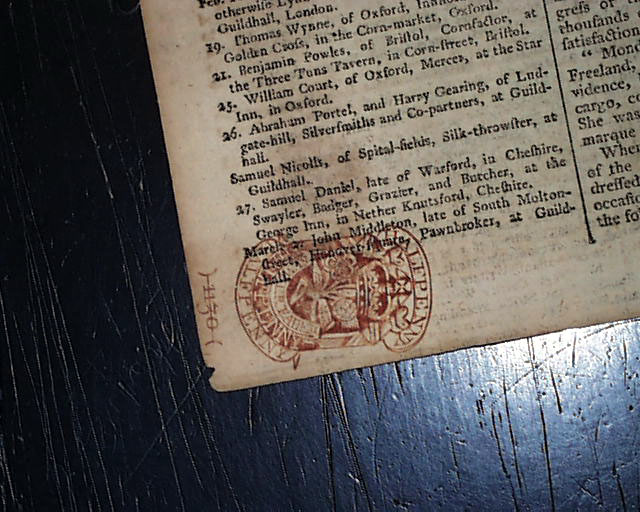 otherwise
Guildhall, London.
19. Thomas Wynne, of Oxford,
Golden Cross, in the Corn-market, Oxford.
21. Benjamin Powles, of Bristol, Cornfactor, at
the Three Tuns Tavern, in Corn-street, Bristol.
25. William Court, of Oxford, Mercer, at the Star
Inn, in Oxford.
26. Abraham Portel, and Harry Gearing, of Lud-
gate-hill, Silversmiths and Co-partners, at Guild-
hall.
Samuel Nicolls, of Spital-fields, Silk-throwster, at
Guildhall.
27. Samuel Daniel, late of Warford, in Cheshire,
Swayler, Badger, Grazier, and Butcher, at the
George Inn, in Nether Knutsford, Cheshire.
March 2. John Middleton, late of South Molton-
street, Hanover-square, Pawnbroker, at Guild-
hall.
gress or
thousands
satisfaction
" Mon
Freeland,
vidence,
cargo, co
She was
marque
When
of the
dressed
occasio
the fo
HALFPENNY